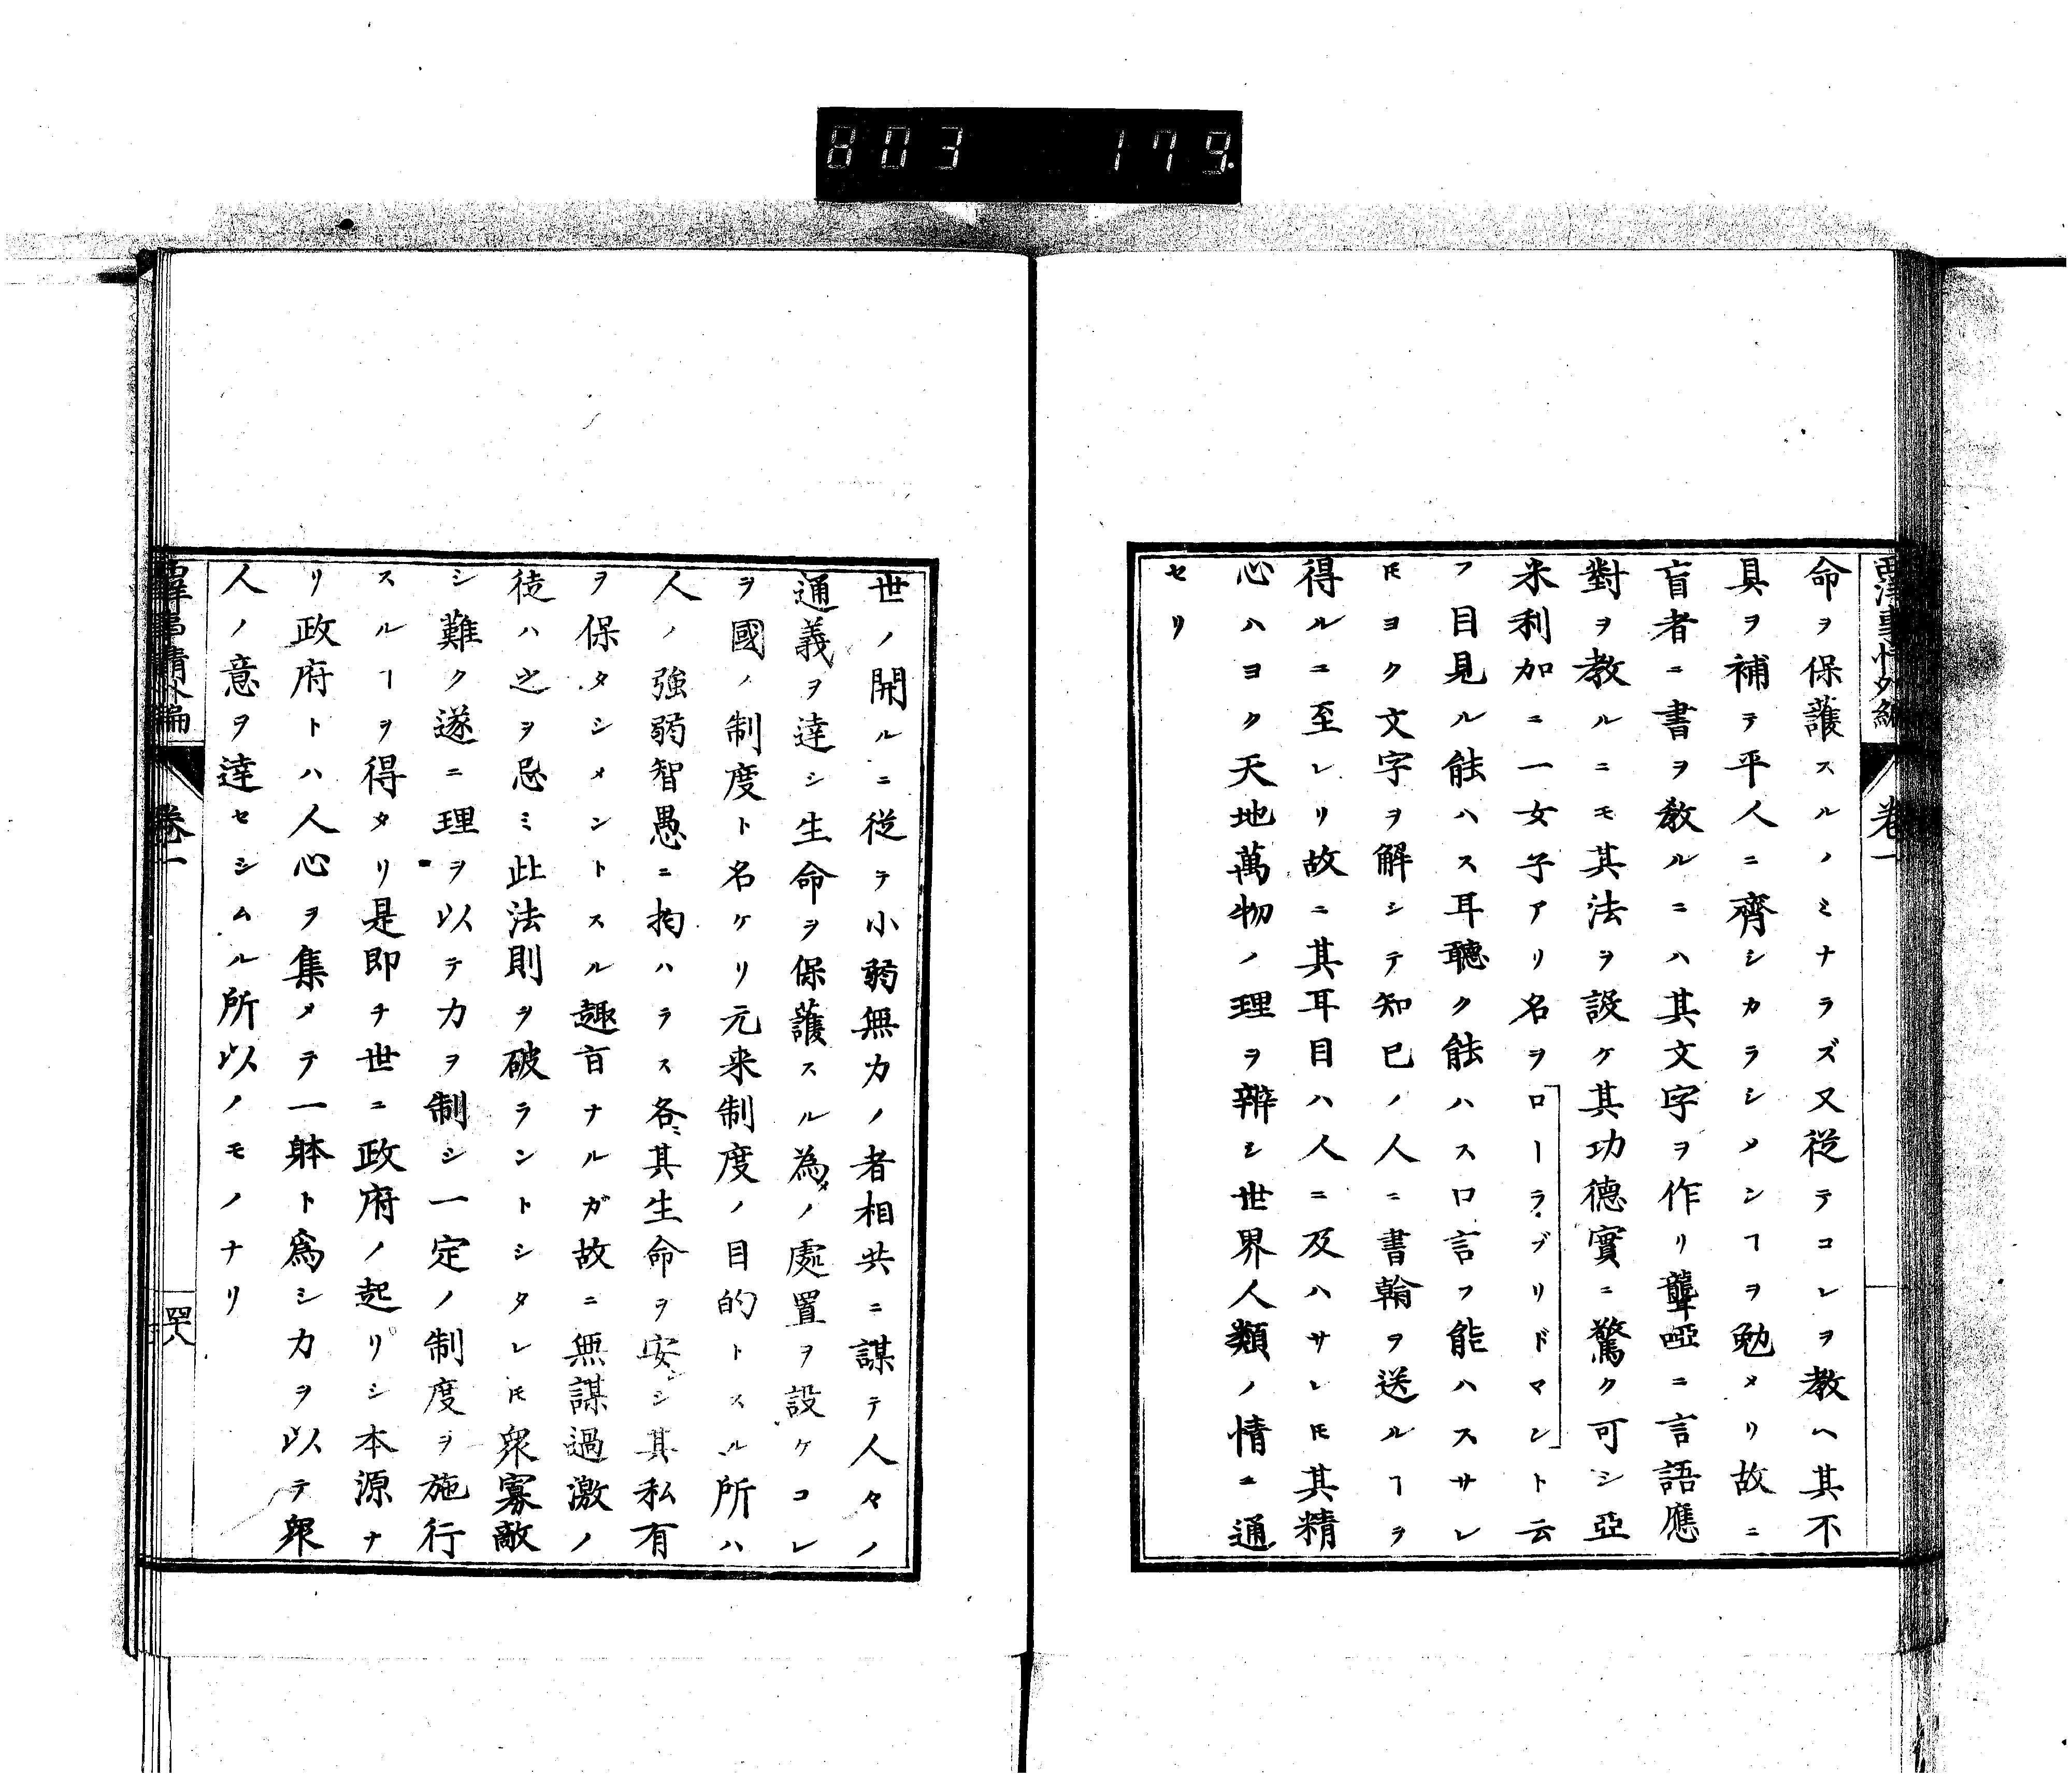 803 179
西洋事情外編 卷一
命ヲ保護スルノミナラズ又從テコレヲ教ヘ其不
具ヲ補ヲ平人ニ齊シカラシメンヿヲ勉メリ故ニ
盲者ニ書ヲ敎ルニハ其文字ヲ作リ聾啞ニ言語應
對ヲ教ルニモ其法ヲ設ケ其功德實ニ驚ク可シ亞
米利加ニ一女子アリ名ヲローラ、ブリドマント云
フ目見ル能ハス耳聽ク能ハス口言フ能ハスサレ
𪜈ヨク文字ヲ解シテ知已ノ人ニ書翰ヲ送ルヿヲ
得ルニ至レリ故ニ其耳目ハ人ニ及ハサレ𪜈其精
心ハヨク天地萬物ノ理ヲ辨シ世界人類ノ情ニ通
セリ
世ノ開ルニ從テ小弱無力ノ者相共ニ謀テ人々ノ
通義ヲ達シ生命ヲ保護スル為メノ處置ヲ設ケコレ
ヲ國ノ制度ト名ケリ元来制度ノ目的トスル所ハ
人ノ強弱智愚ニ拘ハラス各〻其生命ヲ安ンシ其私有
ヲ保タシメントスル趣旨ナルガ故ニ無謀過激ノ
徒ハ之ヲ忌ミ此法則ヲ破ラントシタレ𪜈衆寡敵
シ難ク遂ニ理ヲ以テ力ヲ制シ一定ノ制度ヲ施行
スルヿヲ得タリ是即チ世ニ政府ノ起リシ本源ナ
リ政府トハ人心ヲ集メテ一躰ト爲シ力ヲ以テ衆
人ノ意ヲ達セシムル所以ノモノナリ
事情外編 卷一 四十八